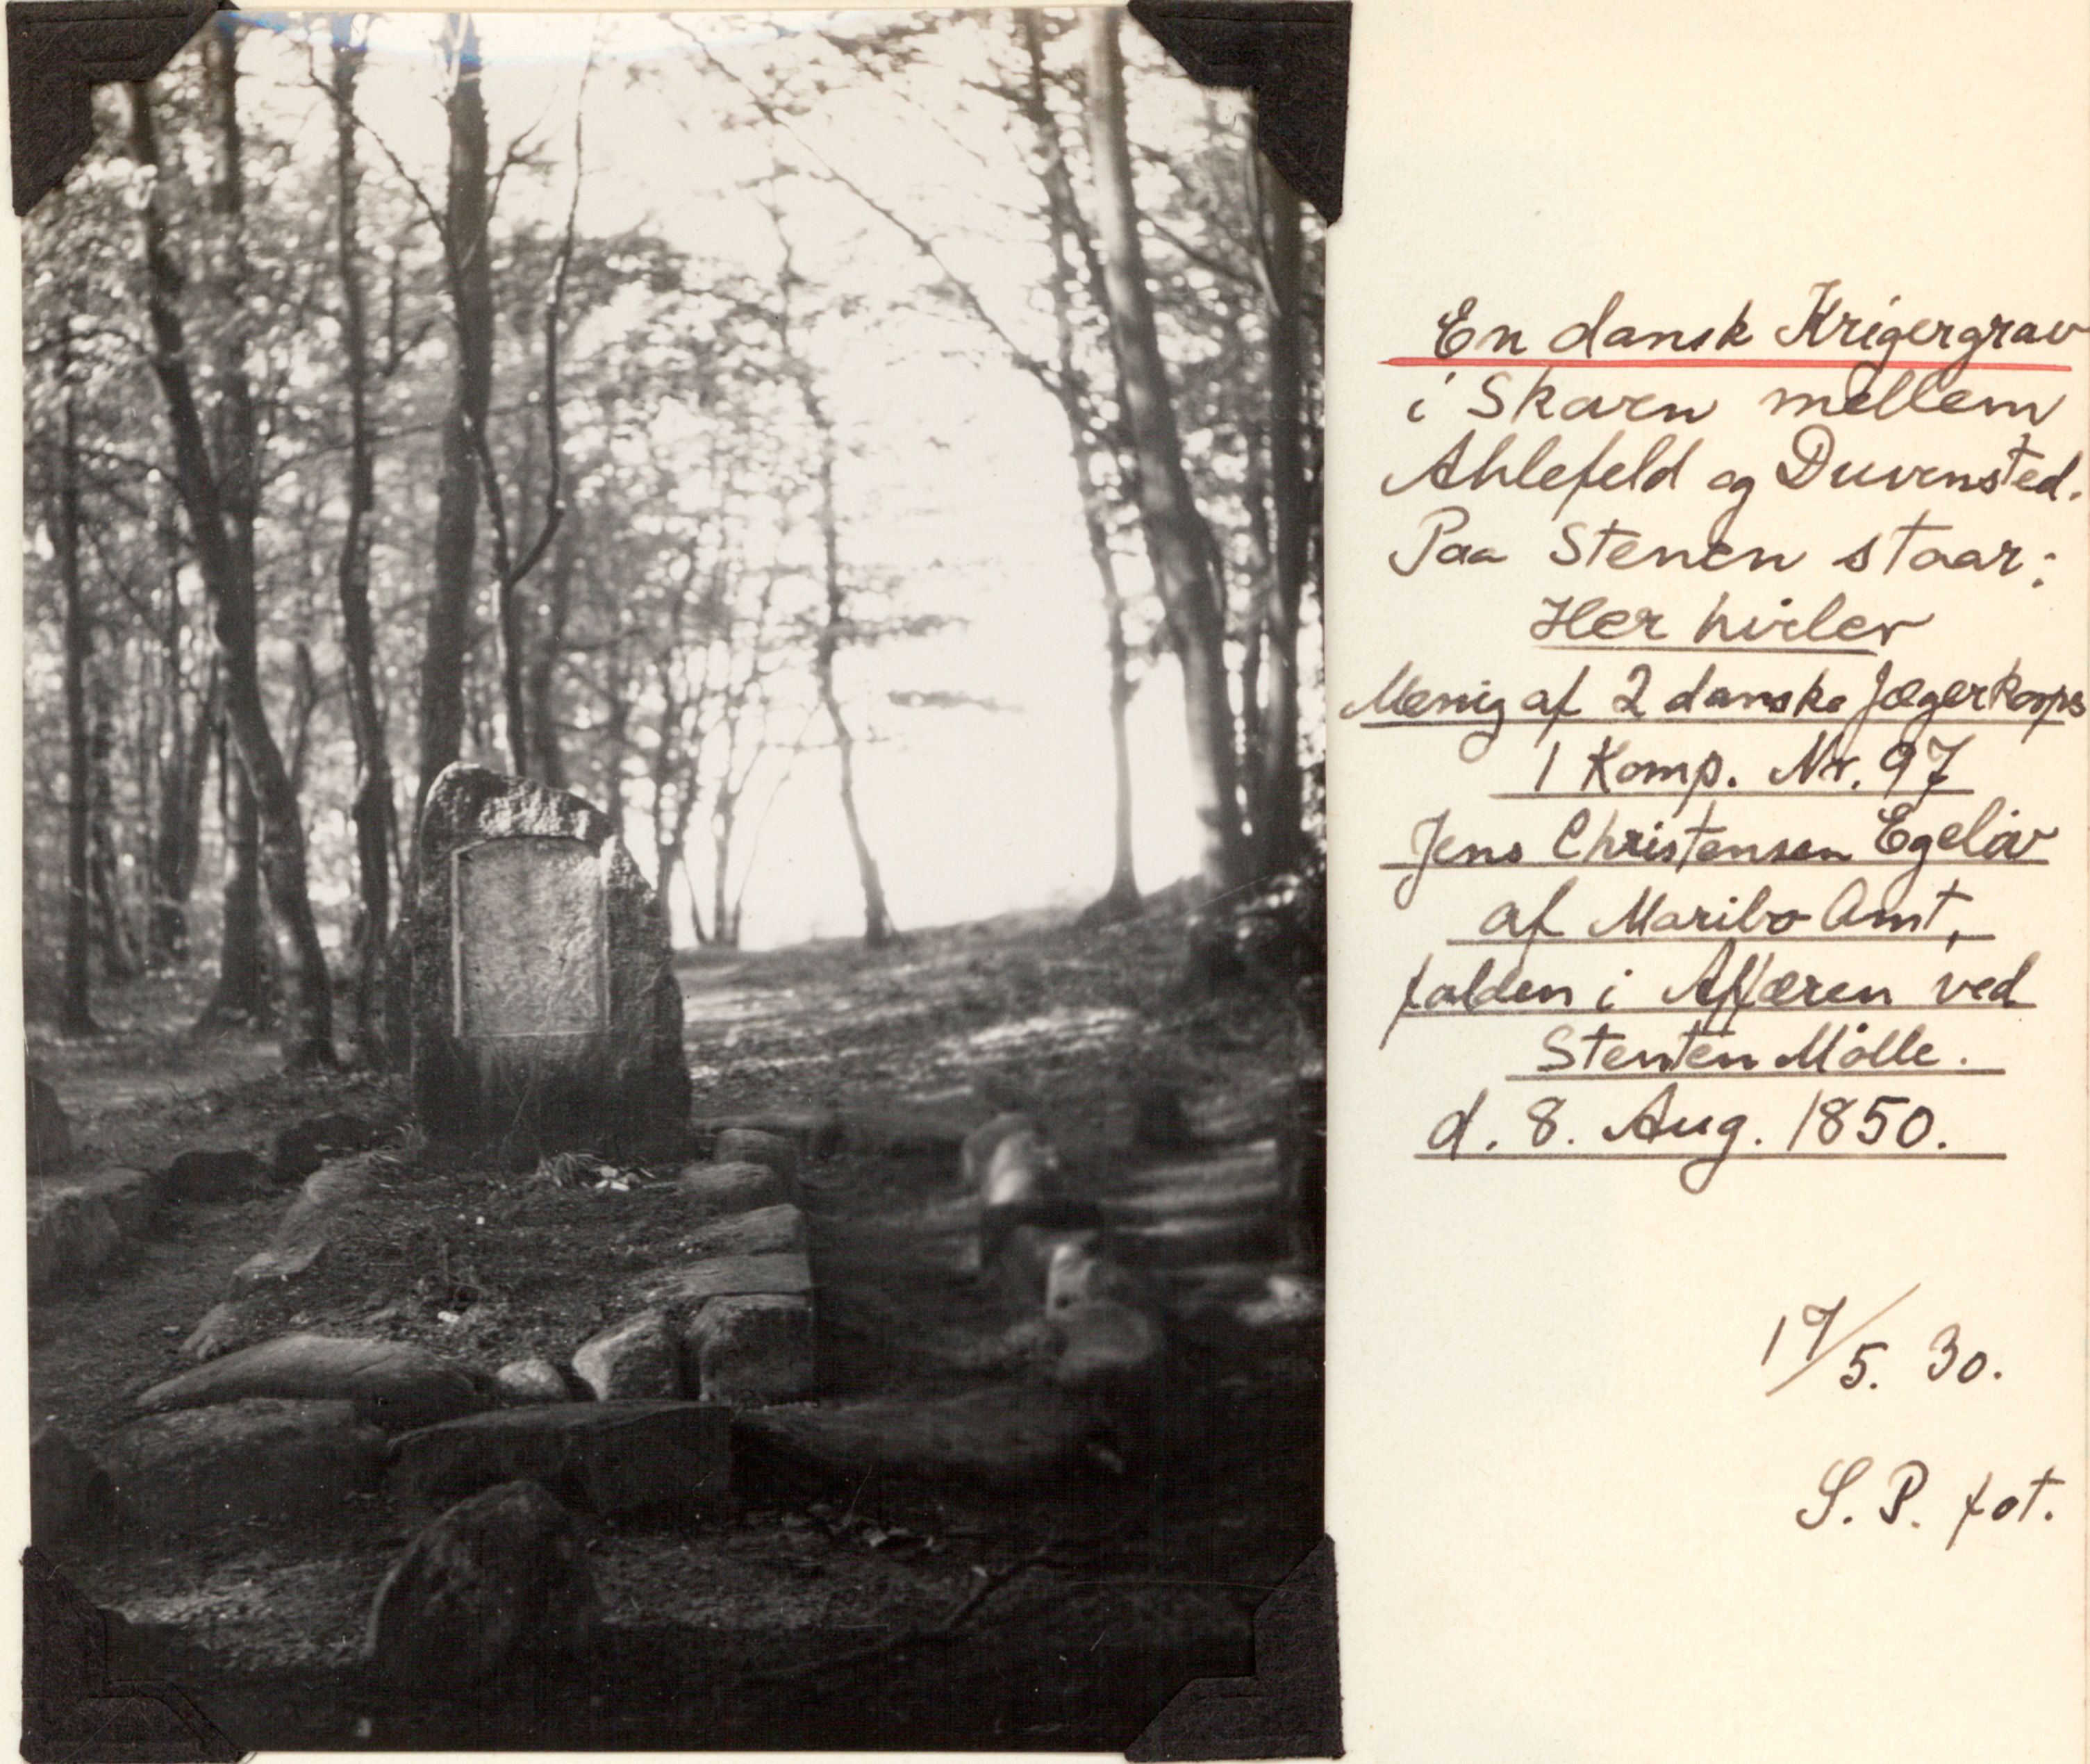 En dansk Krigergrav
i Skoven mellem
Ahlefeld og Duvensted.
Paa Stenen staar:
Her hviler
Menig af 2 danske Jægerkorps
1 Komp. Nr. 97
Jens Christensen Egeløv
af Maribo Amt,
falden i Affæren ved
Stenten Mølle.
d. 8. Aug. 1850.
19/5. 30.
S. P. fot.